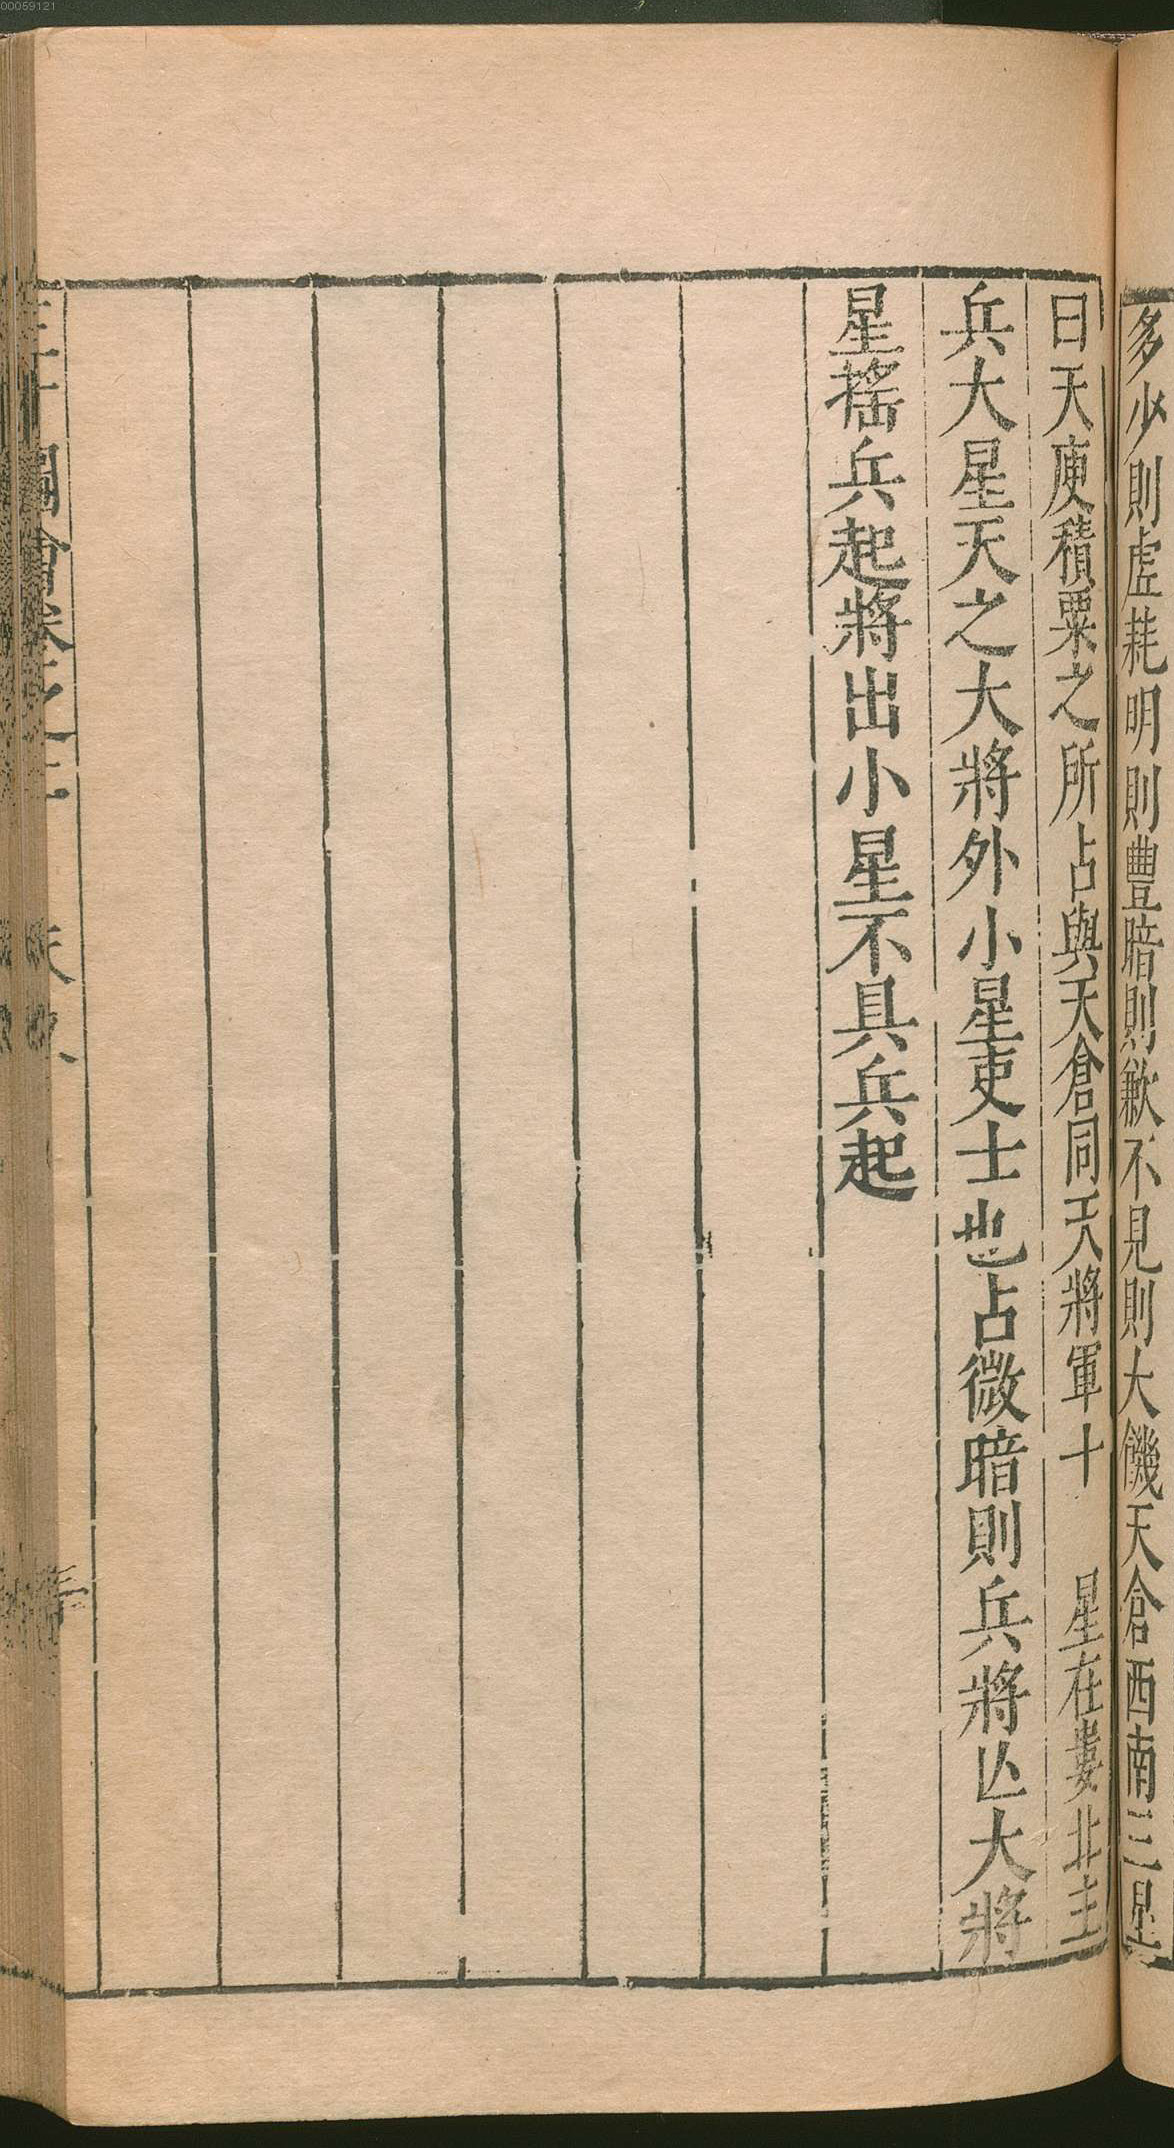 多少則虛耗明則豐暗則歉不見則大饑天倉西南三星
曰天庾積粟之所占與天倉同天將軍十 星在婁北主
兵大星天之大將外小星吏士也占微暗則兵將亾大將
星搖兵起將出小星不具兵起
圖會卷之
00059121